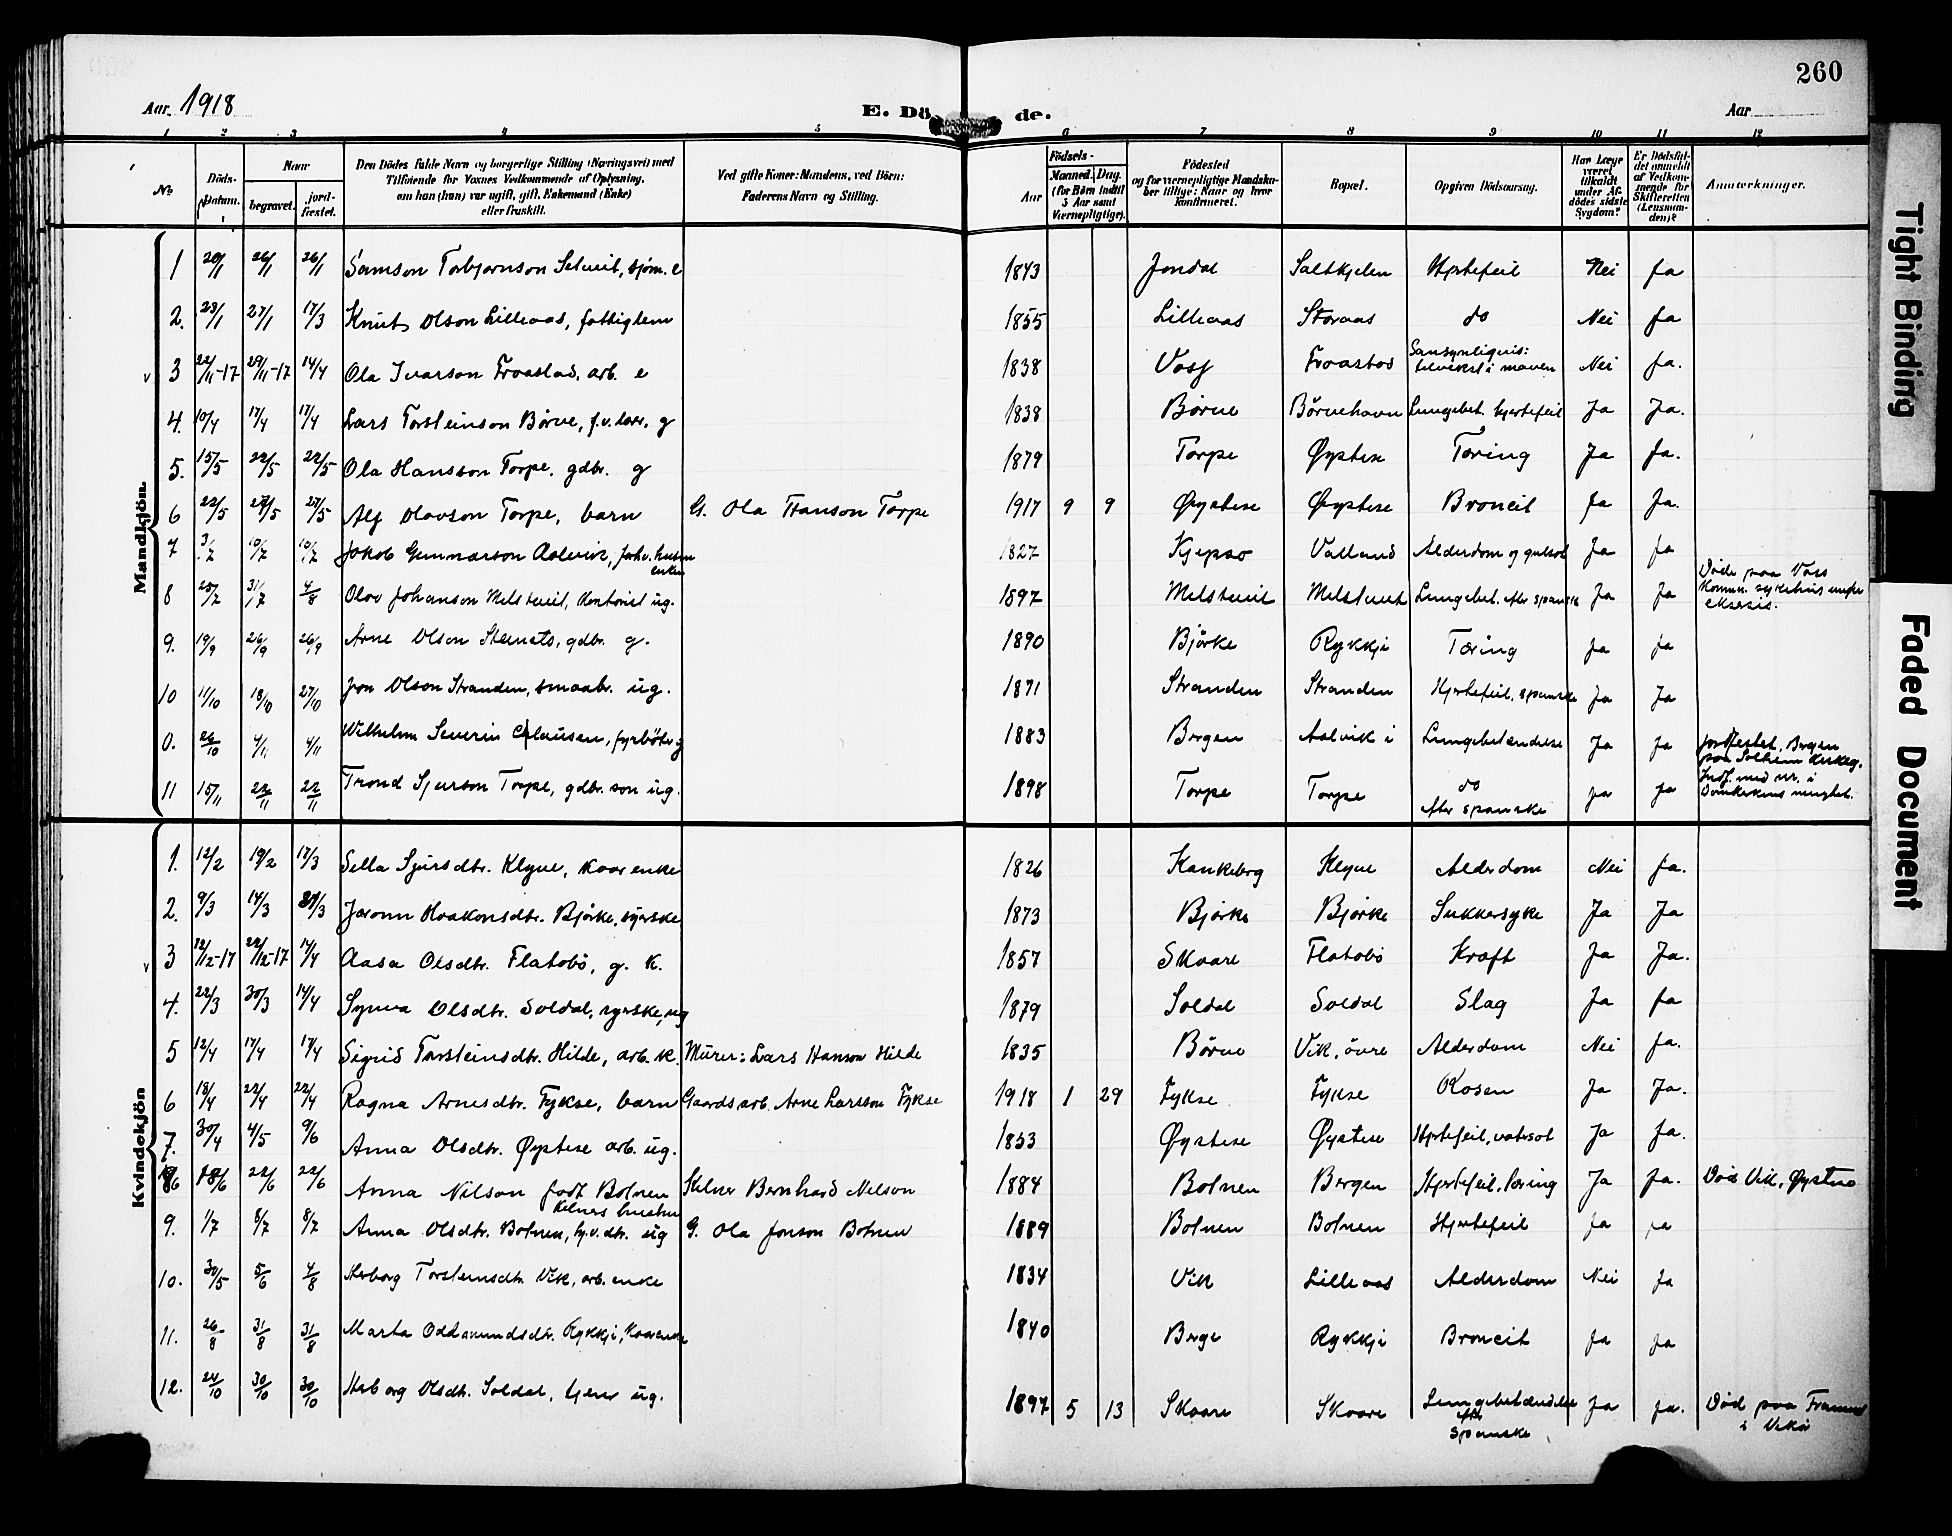 260
Aar 1918
E. Dö de.
Aar
1 2 3 4 5 6 7 8 9 10 11 12
No
Döds-Datum.
Naar
begravet.
jord-fæstet.
Den Dödes fulde Navn og borgerlige Stilling (Næringsvei) med
Tilföiende for Voxnes Vedkommende af Oplysning,
om han (hun) var ugift, gift, Enkemand (Enke)
eller fraskilt.
Ved gifte Koner: Mandens, ved Börn:
Faderens Navn og Stilling.
Aar
Födsels-
Maaned. Dag.
(for Börn indtil
5 Aar samt
Værnepligtige).
Födested
og for værnepligtige Mandska-
ber tillige: Naar og hvor
konfirmeret.
Bopæl.
Opgiven Dödsaarsag.
Har Læge
været
tilkaldt
under Af-
dödes sidste
Sygdom?
Er Dödsfal-
det anmeldt
af Vedkom-
mende for
Skifteretten
(Lensman-
den)?
Anmærkninger.
Mandkjön.
1 20/1 26/1 26/1 Samson Torbjørnson Selsvit, sjøm. e 1843 Jondal Saltkjelen Hjertefeil Nei Ja
2. 23/1 27/1 17/3 Knut Olson Lilleaas, fattiglem 1855 Lilleaas Storaas do Nei Ja
v 3 22/11-17 29/11-17 14/4 Ola Ivarson Froastad, arb. e 1838 Voss Froastad Sansynligvis: tilvekst i maven Nei Ja.
4. 10/4 17/4 17/4 Lars Torsteinson Børve, f.v. g 1838 Børve Børvehavn Lungebet. hjertefeil Ja Ja.
5. 15/5 22/5 22/5 Ola Hansson Torpe, gdbr. g 1879 Torpe Øystese Tæring Ja Ja.
6 22/5 27/5 27/5 Alf Olavson Torpe, barn G. Ola Hanson Torpe 1917 9 9 Øystese Øystese Broncit Ja Ja.
7 3/7 10/7 10/7 Jakob Gunnarson Aalvik, forhv. husm enkem 1827 Kjepso Valland Alderdom og gulsot Ja Ja
8 25/7 31/7 4/8 Olav Johanson Melstveit, kontorist ug. 1897 Melstveit Melstveit Lungebet. efter spanske Ja Ja Døde paa Voss Komun. sykehus under eksersis.
9. 19/9 26/9 26/9 Arne Olson Steinstø, gdbr. g. 1890 Bjørke Rykkje Tæring Ja Ja
10 11/10 18/10 27/10 Jon Olson Stranden, smaabr. ug. 1871 Stranden Stranden Hjertefeil, spanske Ja Ja
0. 26/10 4/11 4/11 Wilhelm Severin Clausen, fyrbøter g 1883 Bergen Aalvik i Lungebetændelse Ja Ja Jordfestet, Bergen paa Solheim kirkeg. Indf. med nr. i Domkirkens menighet.
11 15/11 22/11 22/11 Trond Sjurson Torpe, gdbr. son ug. 1898 Torpe Torpe do efter spanske Ja Ja
Kvindekjön
1. 12/2 19/2 17/3 Sella Sjursdtr. Klyve, kaarenke 1826 Kankeberg Klyve Alderdom Nei Ja.
2. 9/3 14/3 21/3 Joronn Haakonsdtr. Bjørke, syerske 1873 Bjørke Bjørke Sukkersyke Ja Ja
v 3 12/12-17 22/12-17 14/4 Aasa Olsdtr. Flatabø, g. k. 1857 Skaare Flatabø Kræft Ja Ja.
4. 22/3 30/3 14/4 Synva Olsdtr. Soldal, syerske, ug 1879 Soldal Soldal Slag Ja Ja
5 12/4 17/4 17/4 Sigrid Torsteinsdtr. Hilde, arb. k. Murer: Lars Hanson Hilde 1835 Børve Vik, øvre Alderdom Nei Ja.
6 18/4 22/4 22/4 Ragna Arnesdtr. Fykse, barn Gaardsarb. Arne Larsson Fykse 1918 1 29 Fykse Fykse Rosen Ja Ja.
7. 30/4 4/5 9/6 Anna Olsdtr. Øystese arb. ug. 1853 Øystese Øystese Hjertefeil, vatersot Ja Ja.
8 18/6 22/6 22/6 Anna Nilson født Botnen Kelners hustru Kelner Bernhard Nelson 1884 Botnen Bergen Hjertefeil, tæring Ja Ja. Død Vik, Øystese
9. 1/7 8/7 8/7 Anna Olsdtr. Botnen, hj.v. dtr. ug G. Ola Jonson Botnen 1889 Botnen Botnen Hjertefeil Ja Ja
10. 30/5 5/6 4/8 Herborg Torsteinsdtr. Vik, arb. enke 1834 Vik Lilleaas Alderdom Nei Ja
11. 26/8 31/8 31/8 Marta Oddmundsdtr. Rykkje, kaarenke 1840 Berge Rykkje Broncit Ja Ja
12. 24/10 30/10 30/10 Herborg Olsdtr. Soldal, tjener ug. 1897 5 13 Skaare Skaare Lungebetændelse efter spanske Ja Ja. Død paa Framnes i Vikør
Tight Binding
Faded Document